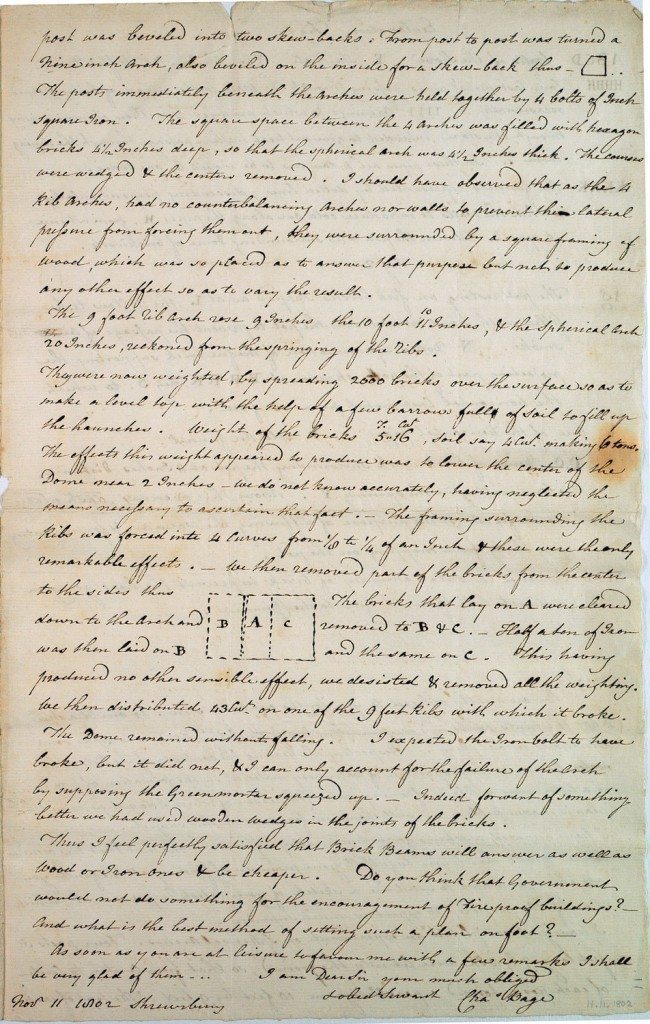 post was beveled into two skew-backs. From post to post was turned a
Nine inch Arch, also beveled on the inside for a skew-back thus –
The posts immediately beneath the Arches were held together by 4 bolts of Inch
square Iron. The square space between the 4 Arches was filled with hexagon
bricks 4½ Inches deep, so that the spherical arch was 4½ Inches thick. The courses
were wedged & the centers removed. I should have observed that as the 4
Rib Arches, had no counterbalancing Arches nor walls to prevent their lateral
pressure from forcing them out, they were surrounded by a square framing of
wood, which was so placed as to answer that purpose but not to produce
any other effect so as to vary the result.
The 9 foot Rib Arch rose 9 Inches the 10 foot 10 Inches, & the spherical Arch
20 Inches, reckoned from the springing of the Ribs.
They were now weighted, by spreading 2000 bricks over the surface so as to
make a level top with the help of a few barrows full of soil to fill up
the haunches. Weight of the bricks 5 T. 16 Cwt., soil say 4 Cwt. making 6 tons.
The effects this weight appeared to produce was to lower the center of the
Dome near 2 Inches – we do not know accurately, having neglected the
means necessary to ascertain that fact. – The framing surrounding the
Ribs was forced into 4 Curves from ⅛ to ¼ of an Inch & these were the only
remarkable effects. – We then removed part of the bricks from the center
to the sides thus B A C The bricks that lay on A were cleared
down to the Arch and removed to B & C. – Half a ton of Iron
was then laid on B and the same on C. This having
produced no other sensible effect, we desisted & removed all the weighting.
We then distributed 43 Cwt. on one of the 9 feet Ribs with which it broke.
The Dome remained without falling. I expected the Iron bolt to have
broke, but it did not, & I can only account for the failure of the Arch
by supposing the Green mortar squeezed up. – Indeed for want of something
better we had used wooden wedges in the joints of the bricks.
Thus I feel perfectly satisfied that Brick Beams will answer as well as
Wood or Iron ones & be cheaper. Do you think that Government
would not do something for the encouragement of Fire proof buildings? –
And what is the best method of setting such a plan on foot? –
As soon as you are at leisure to favour me with a few remarks I shall
be very glad of them – – – I am Dear Sir your most obliged
& obed Servant Chas Bage
Novr 11 1802 Shrewsbury
11.11.1802